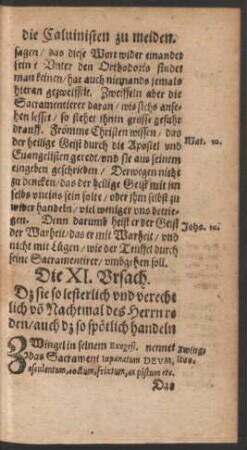 die Caluinisten zu meiden.
sagen / das diese Wort wider einander
sein? Vnter den Orthodoxis findet
man keinen / hat auch niemands jemals
hieran gezweiffelt. Zweiffeln aber die
Sacramentierer daran / wie sichs anse-
hen lesset / so stehet ihnen grosse gefahr
drauff. Fromme Christen wissen / das
der heilige Geist durch die Apostel vnd
Mat. 10.
Euangelisten geredt / vnd sie aus seinem
eingeben geschrieben / Derwegen nicht
zu dencken / das der heilige Geist mit im
selbs vneins sein solte / oder ihm selbst zu
wider handeln / viel weniger vns betrie-
gen. Denn darumb heist er der Geist
Johs. 16.
der Warheit / das er mit Warheit / vnd
nicht mit Lügen / wie der Teuffel durch
seine Sacramentirer / vmbgehen soll.
Die XI. Vrsach.
Dz sie so lesterlich vnd verecht
lich vō Nachtmal des Herrn re
den / auch dz so spötlich handeln
ZWingel in seinem Exegesi. nennet
Zwing-
das Sacrament inpanatum DEVM,
lius.
esculentum, coctum, frixtum, ex pistum etc.
Das